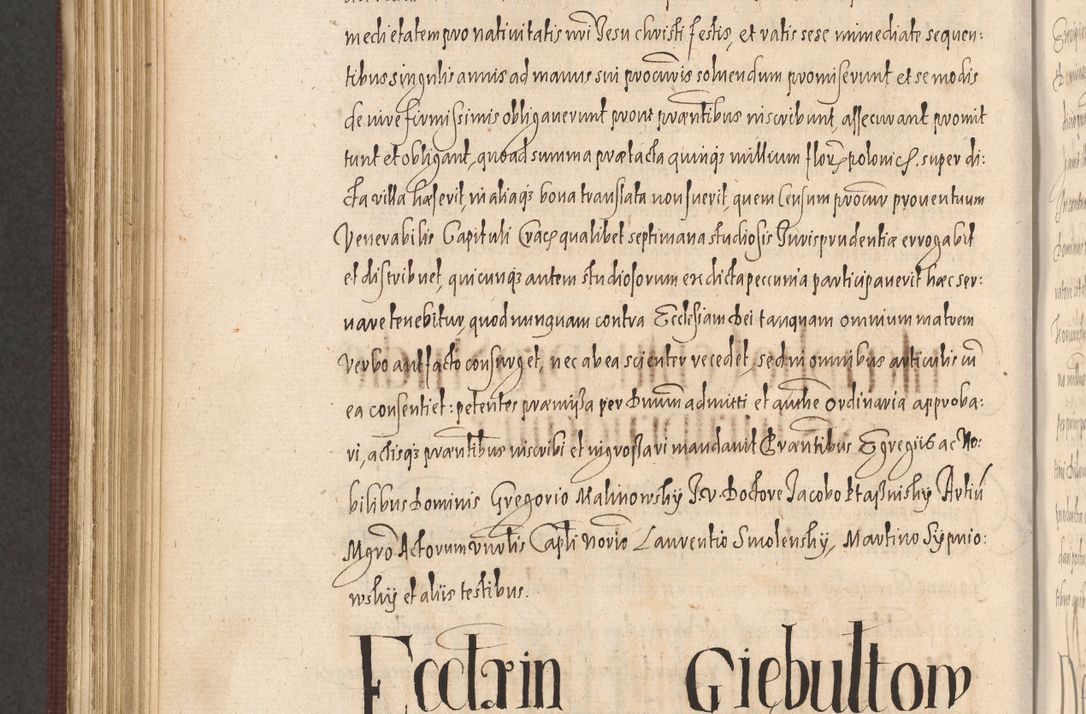 medietatem pro nativitatis nri Jesu christi festis, et ratis sese immediate sequen:
tibus singulis annis ad manus sui procuris solvendum promiserunt et se modis
de iure firmissimis obligaverunt prout præntibus inscribunt, assecurant promit
tunt et obligant, quoad summa prætacta quinqz millium floř polonicř. super di:
cta villa hæserit, in aliaqz bona translata non fuerit, quem Censum procur proventuum
Venerabilis Capituli Crač qualibet septimana studiosis Jurisprudentiæ errogabit
et distribuet, quicunqz autem studiosorum ex dicta pecunia participaverit hæc ser:
uare tenebitur, quod nunquam contra Ecclesiam Dei tanquam omnium matrem
verbo aut facto consurget, nec ab ea scienter recedet, sed in omnibus articulis cū
ea consentiet: petentes præmissa per Dnum admitti et authe ordinaria approba:
ri, actisqz præntibus inscribi et ingrossari mandavit Præntibus Egregiis ac No:
bilibus Dominis Gregorio Malinowsky J.V. Doctore Jacobo Ktaßnisky Artiū
Mgrō Actorum vnrlis Caplī Norio Laurentio Smolensky, Martino Sypnio:
wsky et aliis testibus.
Eccła in Giebułtow